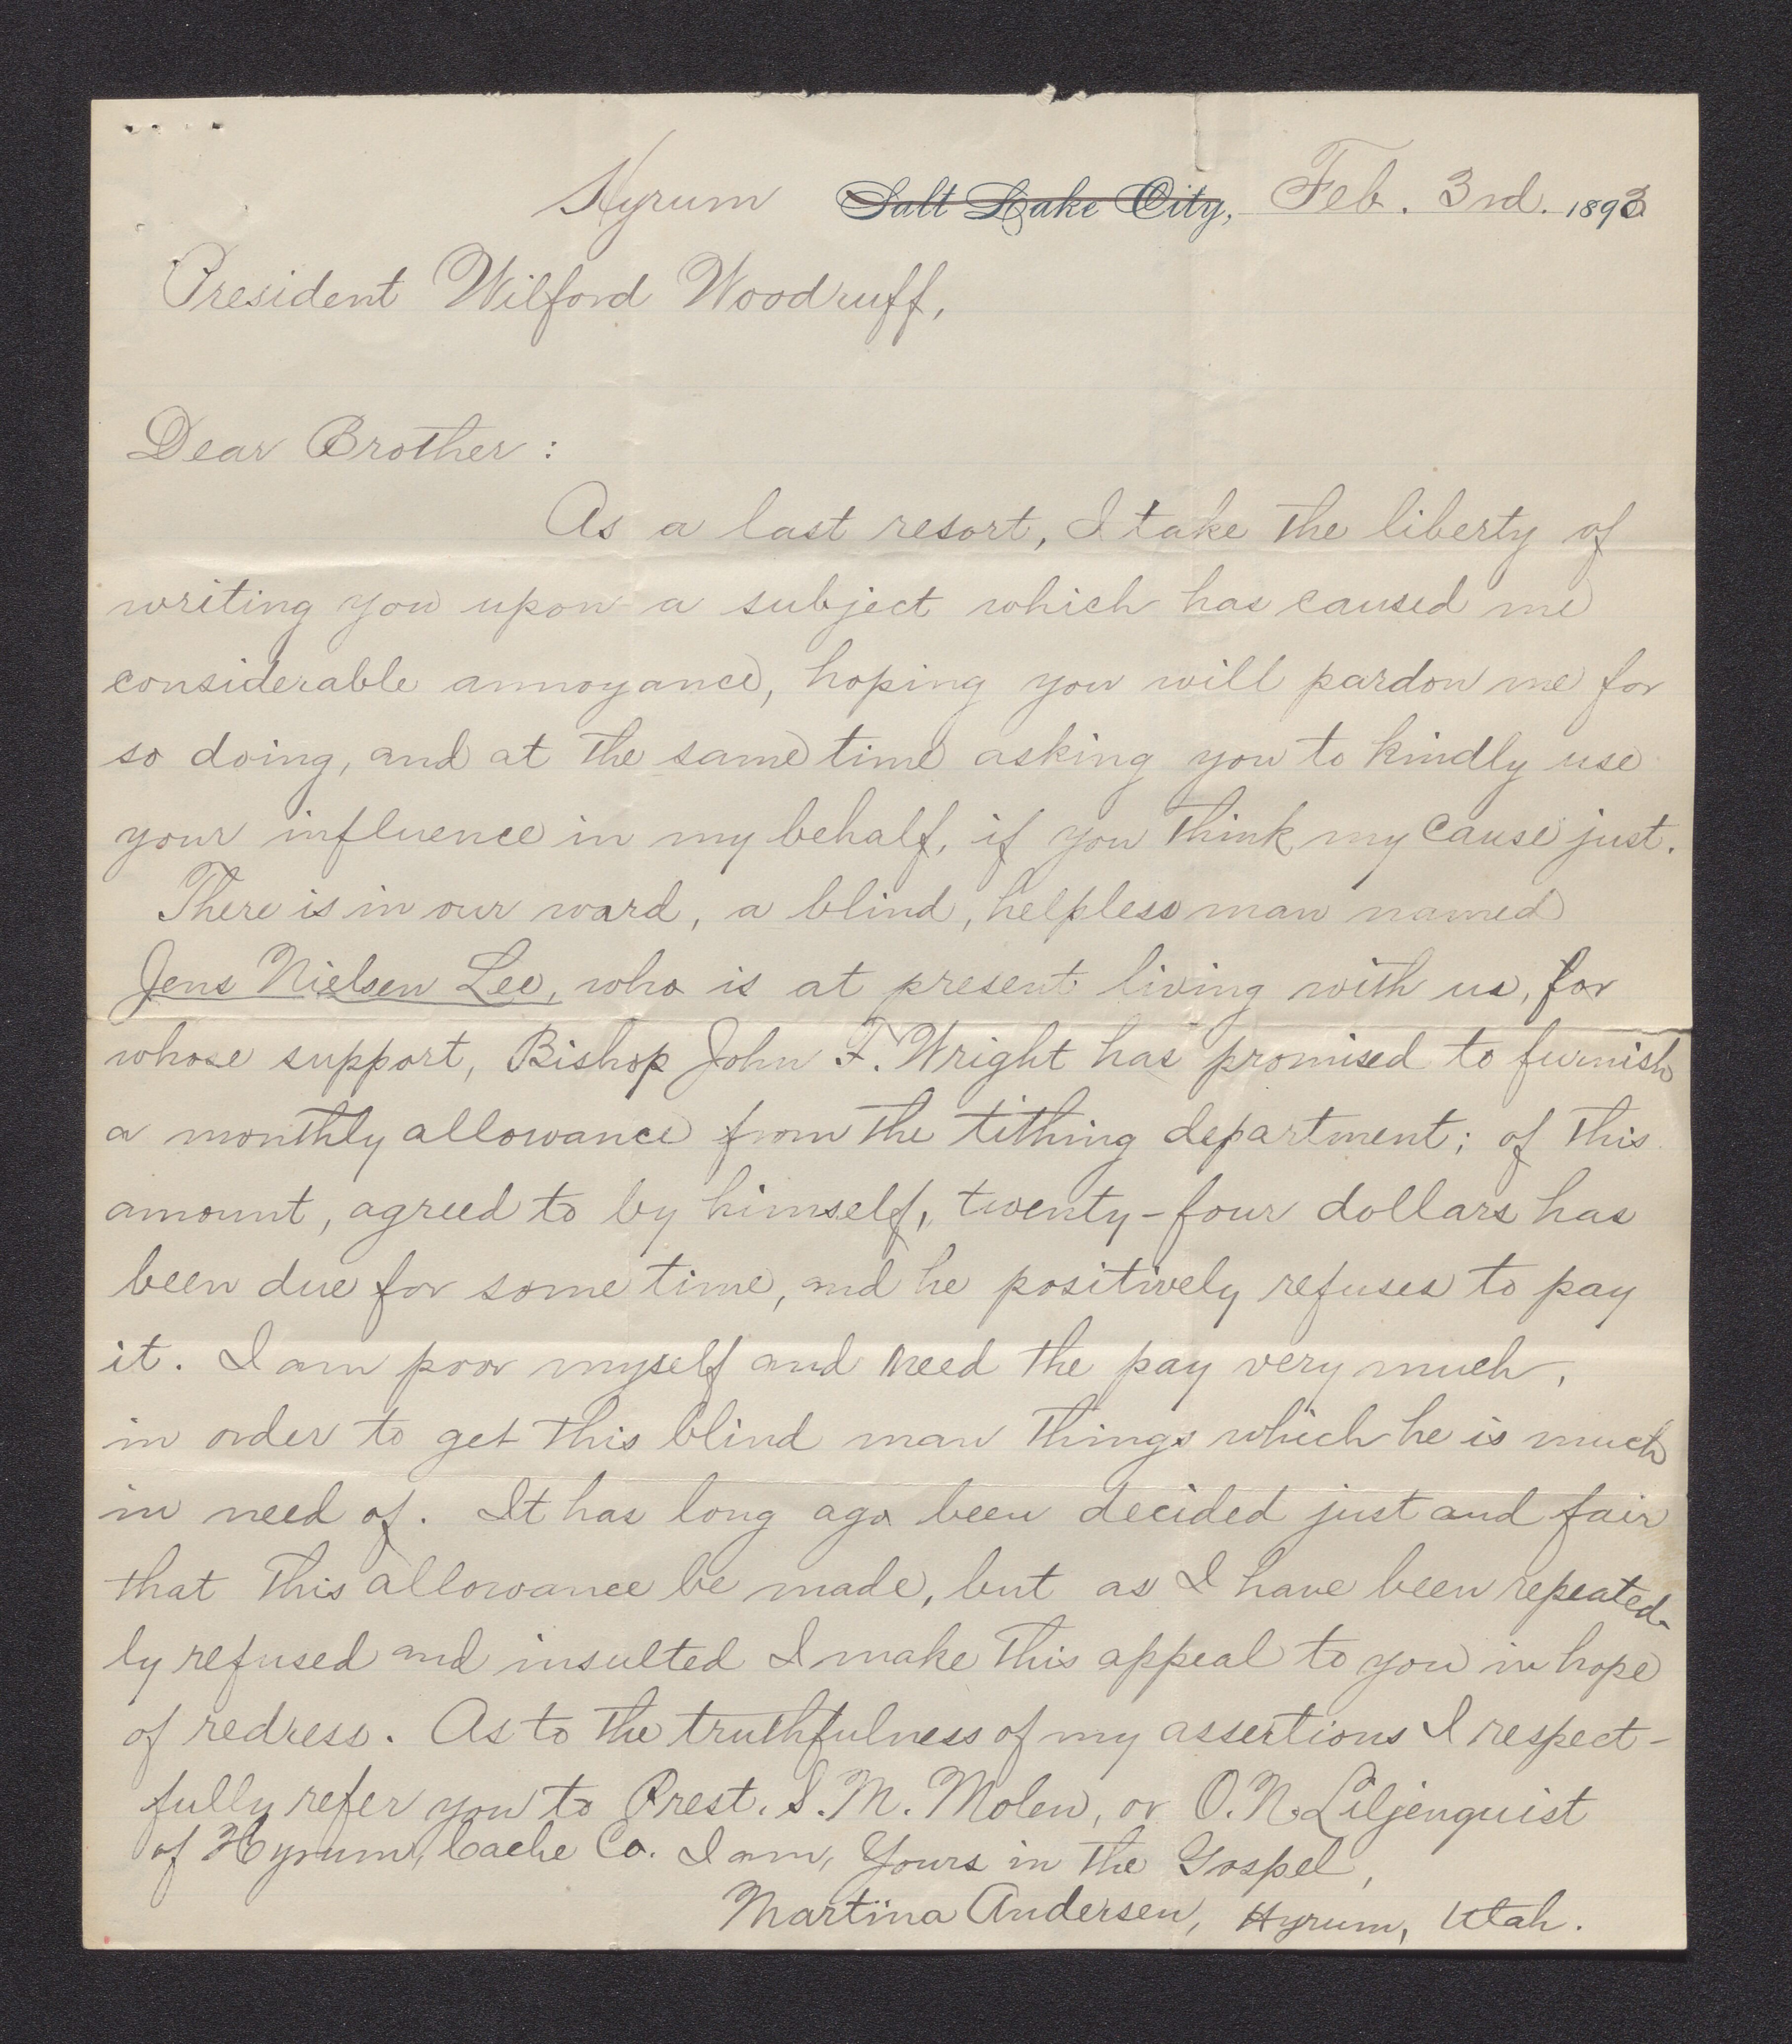 Hyrum Salt Lake City, Feb. 3rd. 1893
President Wilford Woodruff,
Dear Brother :
As a last resort, I take the liberty of
writing you upon a subject which has caused me
considerable annoyance, hoping you will pardon me for
so doing, and at the same time asking you to kindly use
your influence in my behalf, if you think my cause just.
There is in our ward, a blind, helpless man named
Jens Nielsen Lee, who is at present living with us, for
whose support, Bishop John F. Wright has promised to furnish
a monthly allowance from the tithing department; of this
amount, agreed to by himself, twenty-four dollars has
been due for some time, and he positively refuses to pay
it. I am poor myself and need the pay very much,
in order to get this blind man things which he is much
in need of. It has long ago been decided just and fair
that this allowance be made, but as I have been repeated-
ly refused and insulted I make this appeal to you in hope
of redress. As to the truthfulness of my assertions I respect-
fully refer you to Prest. S. M. Molen, or O. N. Liljenquist
of Hyrum, Cache Co. I am, Yours in the Gospel,
Martina Andersen, Hyrum, Utah.